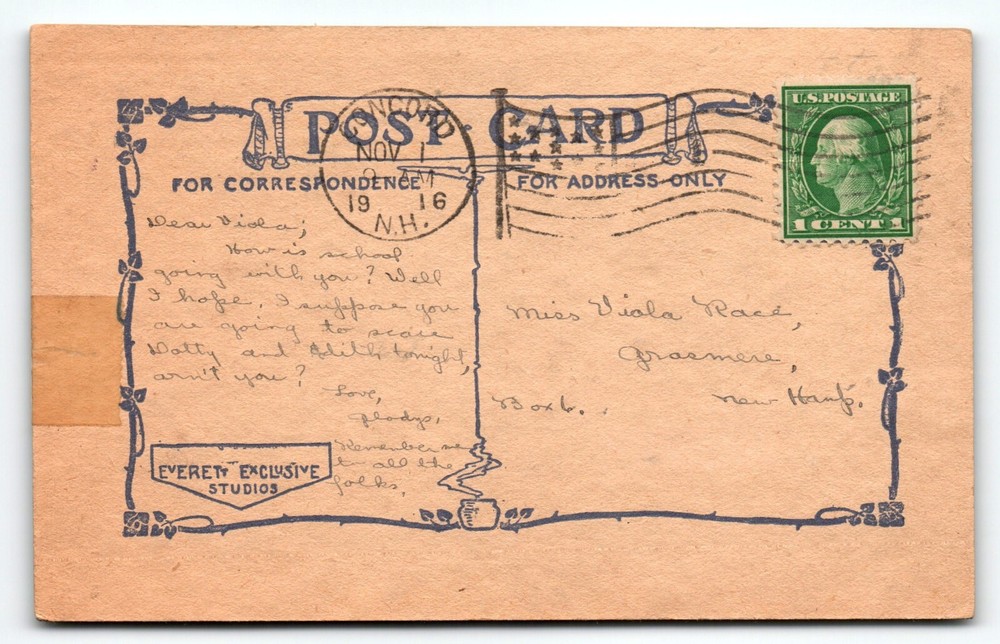 POST CARD
CONCORD
NOV 1
AM
19 16
N.H.
U.S. POSTAGE
1 CENT 1
FOR CORRESPONDENCE
FOR ADDRESS ONLY
Dear Viola;
How is school
going with you? Well
I hope. I suppose you
are going to scare
Dotty and Edith tonight,
arn't you?
Love,
Gladys,
Remember me
to all the
folks,
Miss Viola Race,
Grasmere,
New Hamp.
Box 6.
EVERETT EXCLUSIVE
STUDIOS